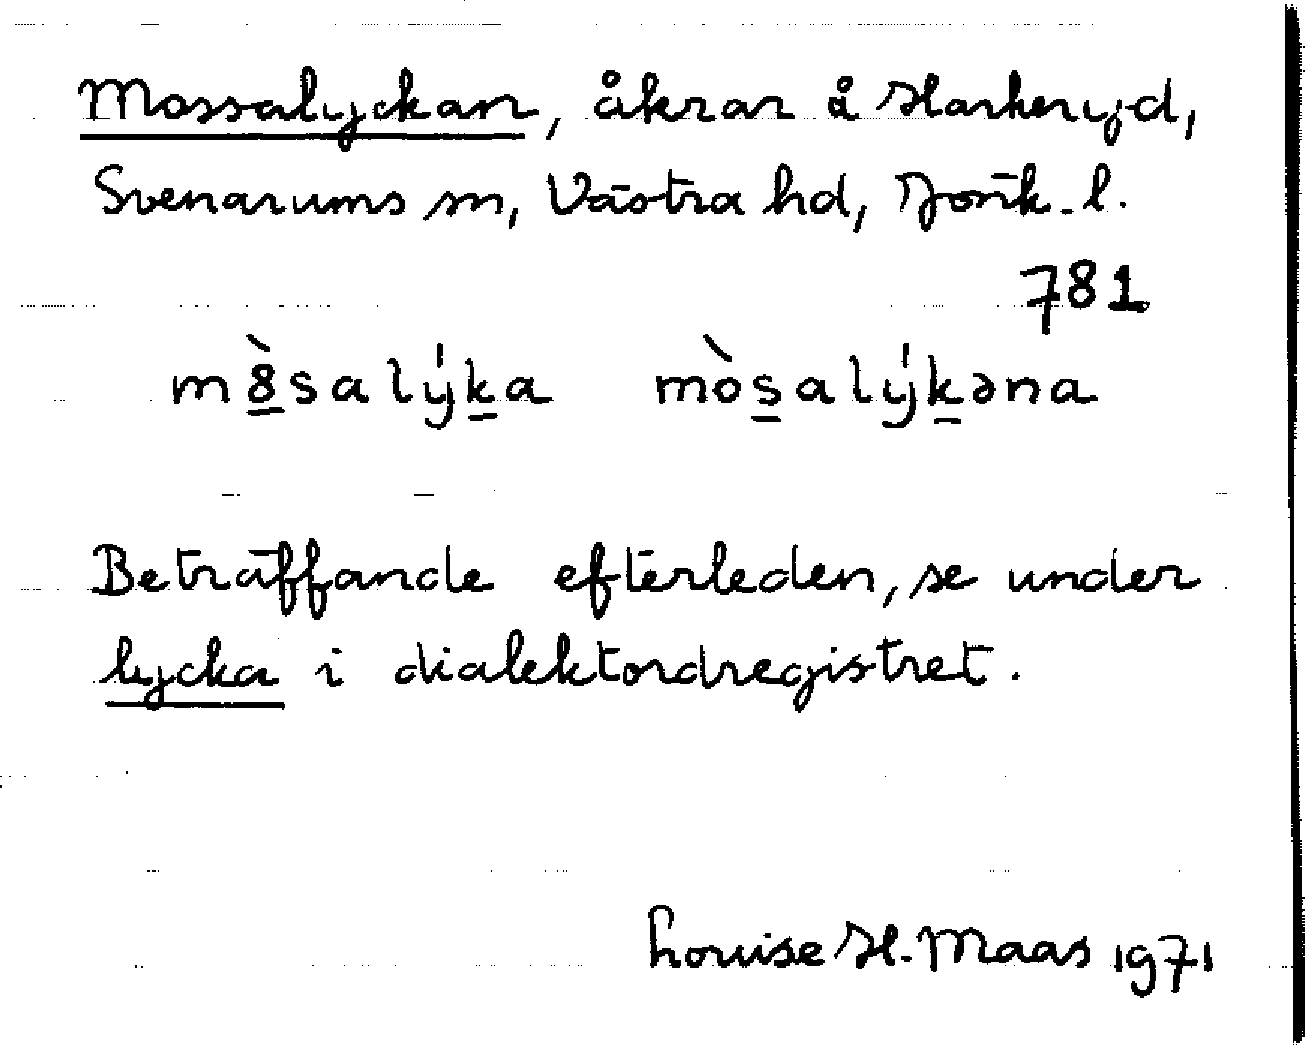 Mossalyckan, åkrar å Harkeryd,
Svenarums sn, Västra hd, Jönk. l.
781
m8̱̀salýḵa mòs̱alýḵəna
Beträffande efterleden, se under
lycka i dialektordregistret.
Louise H. Maas 1971